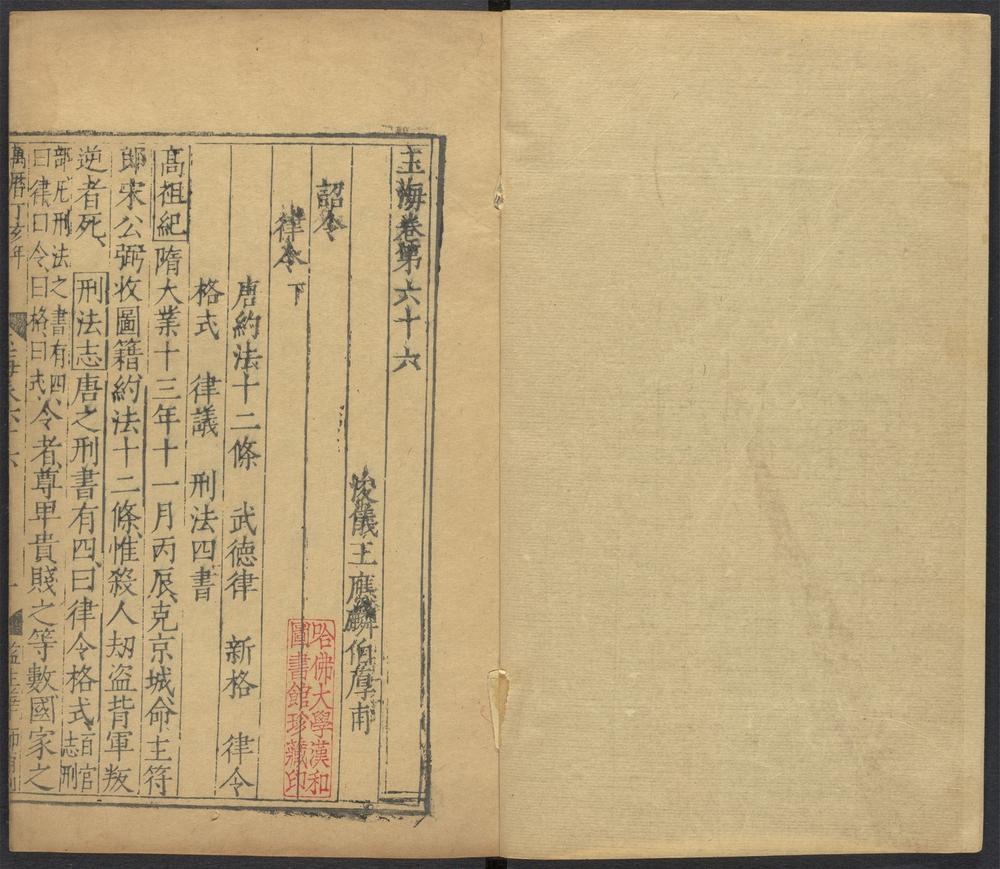 玉海卷第六十六
浚儀王應麟伯厚甫
詔令
律令下
唐約法十二條 武德律 新格 律令
格式 律議 刑法四書
高祖紀隋大業十三年十一月丙辰克京城命主符
郎宋公弼收圖籍約法十二條惟殺人劫盗背軍叛
逆者死 刑法志唐之刑書有四曰律令格式百官志刑
部凡刑法之書有四曰律曰令曰格曰式令者尊卑貴賤之等數國家之
萬曆丁亥年
哈佛大學漢和
圖書館珍藏印